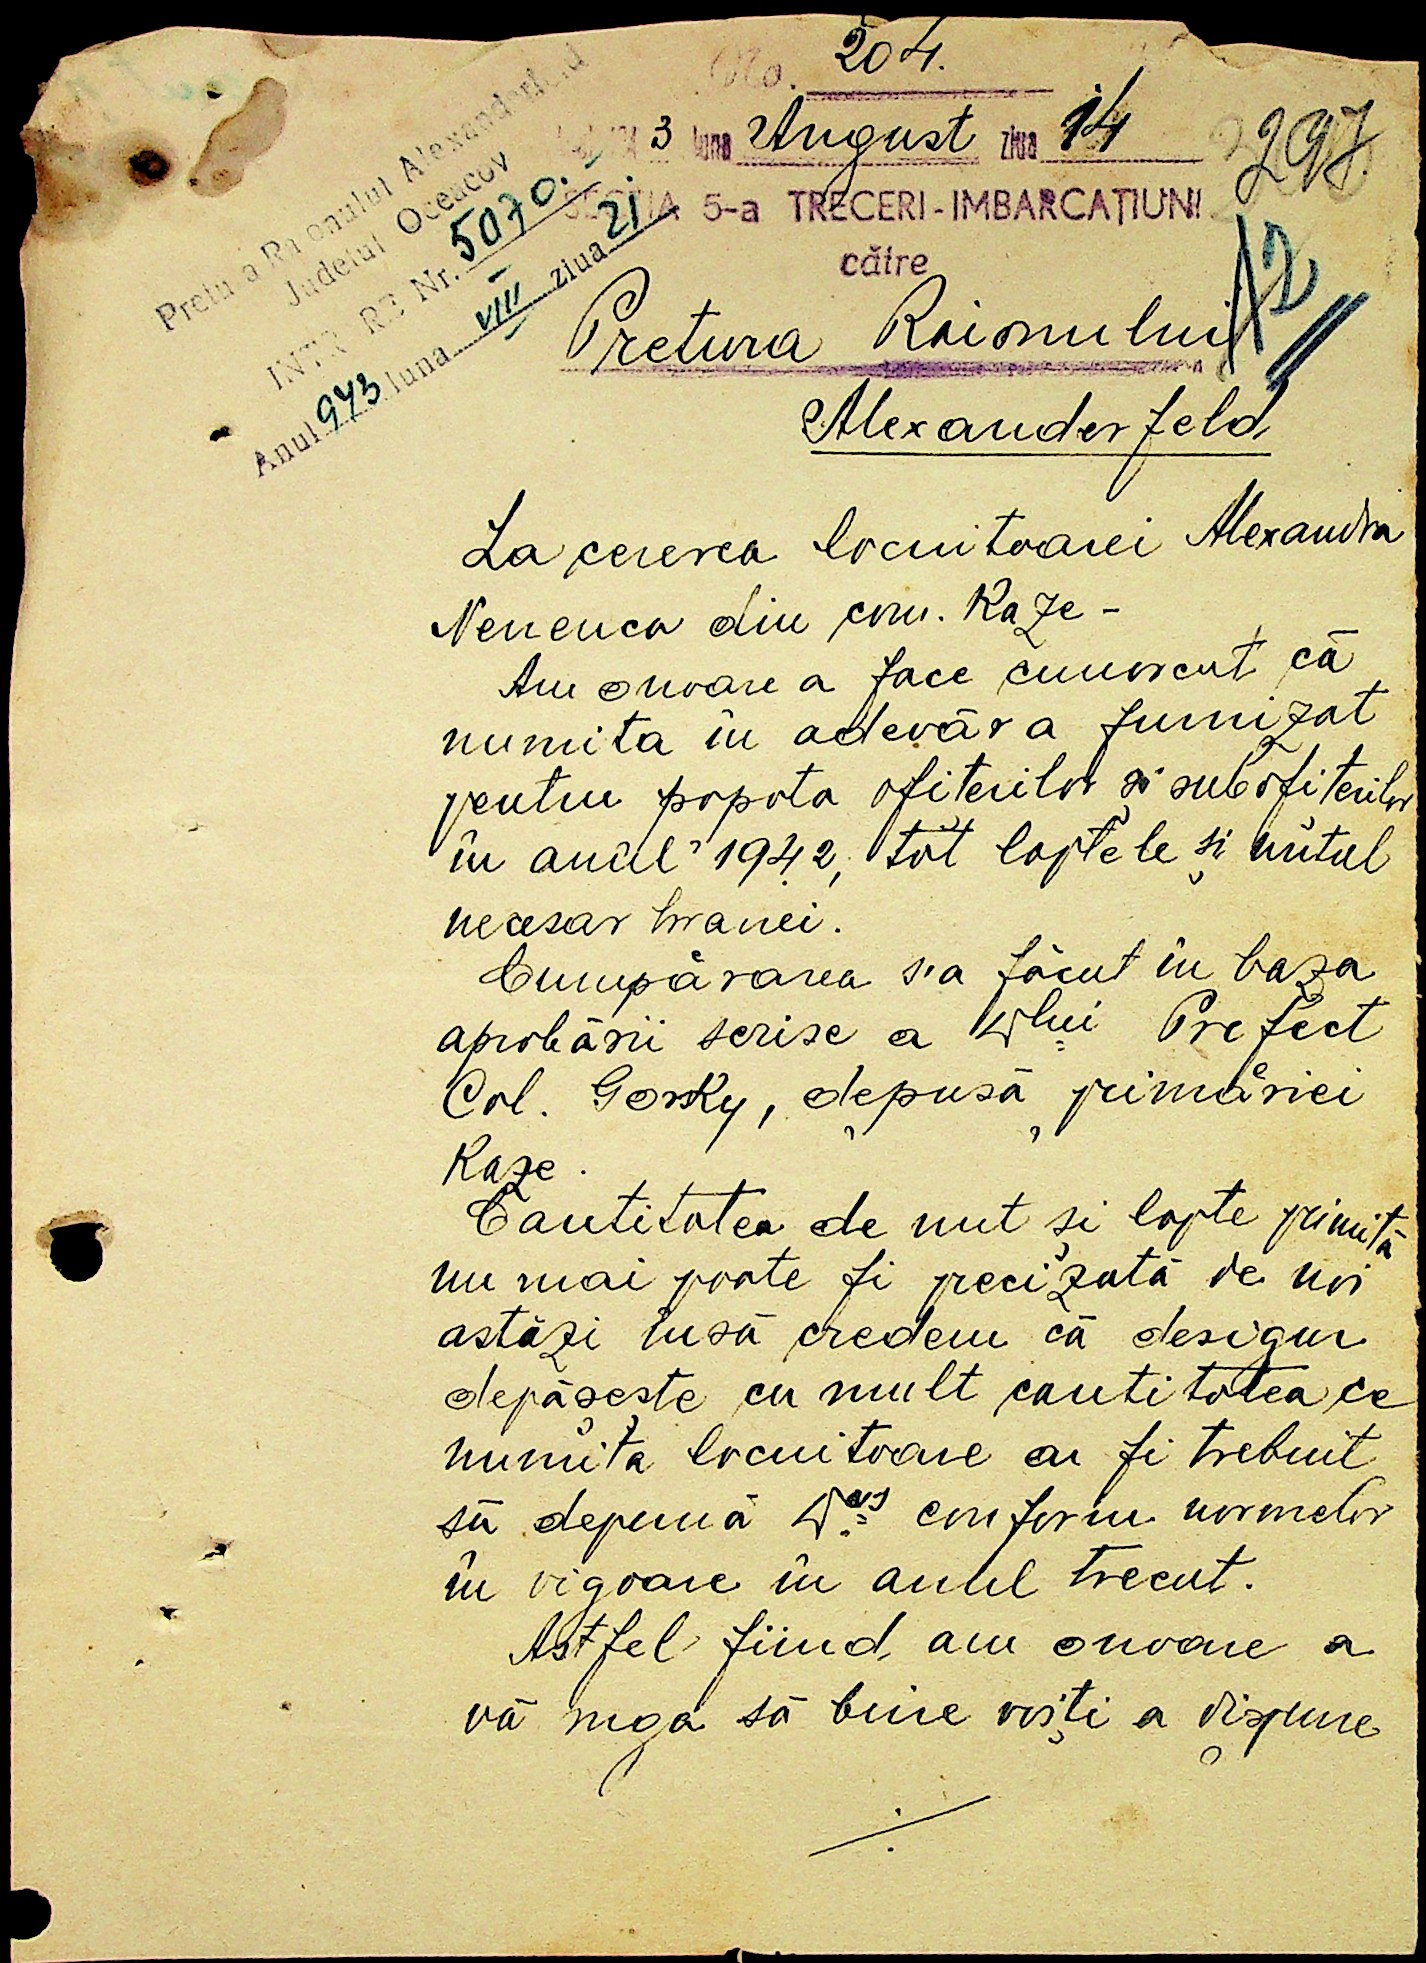 No. 204.
3 luna August ziua 14
297.
SECȚIA 5-a TRECERI-IMBARCAȚIUNI
către
Pretura Raionului Alexanderfeld
Județul Oceacov
INTRARE Nr. 5070.
Anul 943 luna VIII ziua 21.
12
Pretura Raionului
Alexanderfeld
La cererea locuitoarei Alexandra
Nenenco din com. Kaze -
Am onoare a face cunoscut că
numita în adevăr a furnizat
pentru popota ofiterilor și subofiterilor
în anul 1942, tot laptele și untul
necesar hranei.
Cumpărarea s'a făcut în baza
aprobării scrise a Dlui Prefect
Col. Gorsky, depusă primăriei
Kaze.
Cantitatea de unt și lapte primită
nu mai poate fi precizată de noi
astăzi însă credem că desigur
depășeste cu mult cantitatea ce
numita locuitoare ar fi trebuit
să depună Dvs conform normelor
în vigoare în anul trecut.
Astfel fiind, am onoare a
vă ruga să bine voiți a dispune
./.